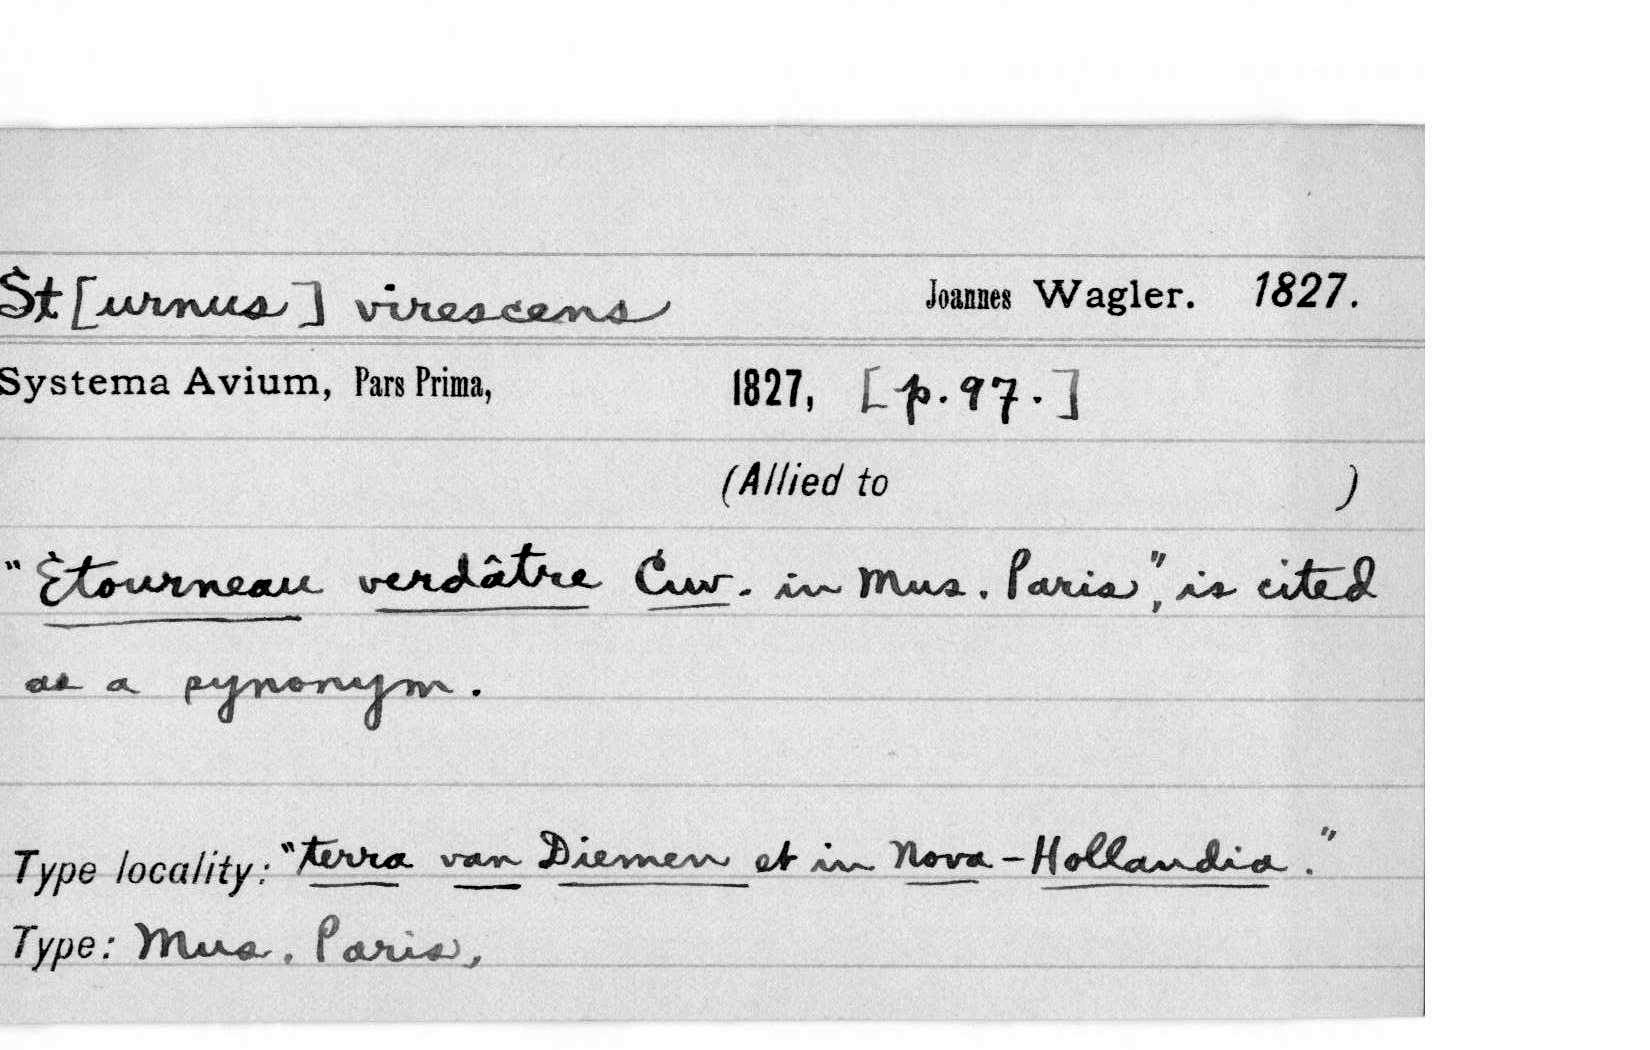 St[urnus] virescens Joannes Wagler. 1827.
Systema Avium, Pars Prima, 1827, [p. 97.]
(Allied to )
"Ètourneau verdâtre Cuv. in Mus. Paris", is cited
as a synonym.
Type locality: "terra van Diemen et in Nova-Hollandia."
Type: Mus. Paris,